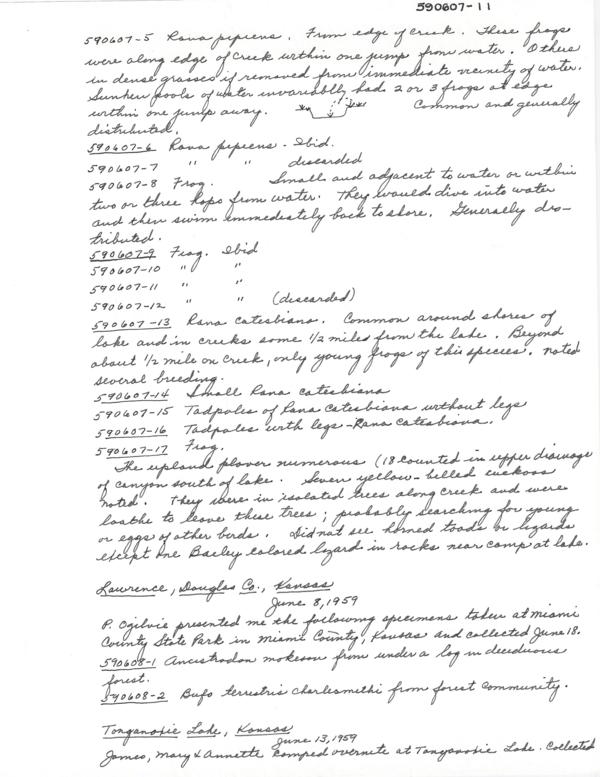 590607-11
590607-5 Rana pipiens. From edge of creek. These frogs
were along edge of creek within one jump from water. Others
in dense grasses if removed from immediate vicinity of water.
Sunken pools of water invariably had 2 or 3 frogs at edge
within one jump away. Common and generally
distributed.
590607-6 Rana pipiens - Ibid.
590607-7 " " discarded
590607-8 Frog. Small and adjacent to water or within
two or three hops from water. They would dive into water
and then swim immediately back to shore. Generally dis-
tributed.
590607-9 Frog. Ibid
590607-10 " "
590607-11 " "
590607-12 " " (discarded)
590607-13 Rana catesbiana. Common around shores of
lake and in creeks some 1/2 miles from the lake. Beyond
about 1/2 mile on creek, only young frogs of this species. noted
several breeding.
590607-14 Small Rana catesbiana
590607-15 Tadpoles of Rana catesbiana without legs
590607-16 Tadpoles with legs - Rana catesbiana.
590607-17 Frog.
The upland plover numerous (18 counted in upper drainage
of canyon south of lake. Seven yellow-billed cuckoos
noted. They were in isolated trees along creek and were
loathe to leave these trees; probably searching for young
or eggs of other birds. Did not see horned toads or lizards
except one Bailey colored lizard in rocks near camp at lake.
Lawrence, Douglas Co., Kansas
June 8, 1959
P. Ogilvie presented me the following specimens taken at Miami
County State Park in Miami County, Kansas and collected June 18.
590608-1 Ancistrodon mokeson from under a log in deciduous
forest.
590608-2 Bufo terrestris charlesmithi from forest community.
Tonganoxie Lake, Kansas
June 13, 1959
James, Mary & Annette camped overnite at Tonganoxie Lake. Collected